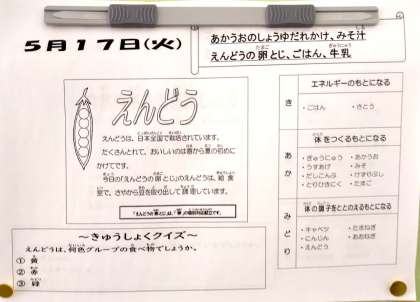 5月17日(火)
あかうおのしょうゆだれかけ、みそ汁
えんどうの卵とじ、ごはん、牛乳
えんどう
えんどうは、日本全国で栽培されています。
たくさんとれて、おいしいのは春から夏の初めに
かけてです。
今日の「えんどうの卵とじ」のえんどうは、給食
室で、さやから豆を取り出して調理しています。
～きゅうしょくクイズ～
えんどうは、何色グループの食べ物でしょうか。
① 黄
② 赤
③ 緑
き
エネルギーのもとになる
・ごはん ・さとう
あか
体をつくるもとになる
・ぎゅうにゅう ・あかうお
・うすあげ ・みそ
・だしこんぶ ・けずりぶし
・とりひきにく ・たまご
みどり
体の調子をととのえるもとになる
・キャベツ ・たまねぎ
・にんじん ・あおねぎ
・えんどう